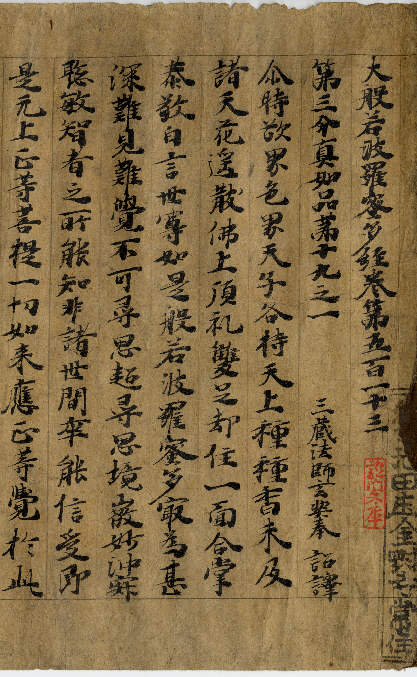 大般若波羅蜜多經卷第五百一十三
第三分真如品第十九之一　三藏法師玄奘奉　詔譯
尒時欲界色界天子各持天上種種香末及
諸天花遙散佛上頂礼雙足却住一面合掌
恭敬白言世尊如是般若波羅蜜多寂為甚
深難見難覺不可尋思超尋思境㣲妙沖寂
聰敏智者之所能知非諸世間卒能信受即
是无上正等菩提一切如来應正等覺於此